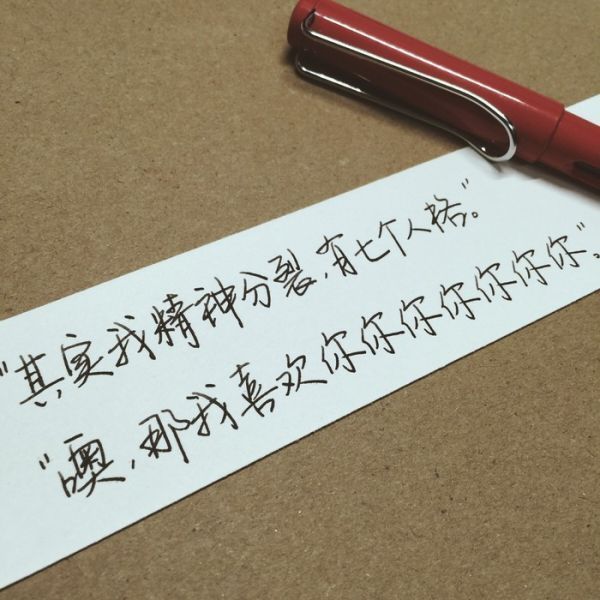 "其实我精神分裂，有七个人格。"
"噢，那我喜欢你你你你你你你"。